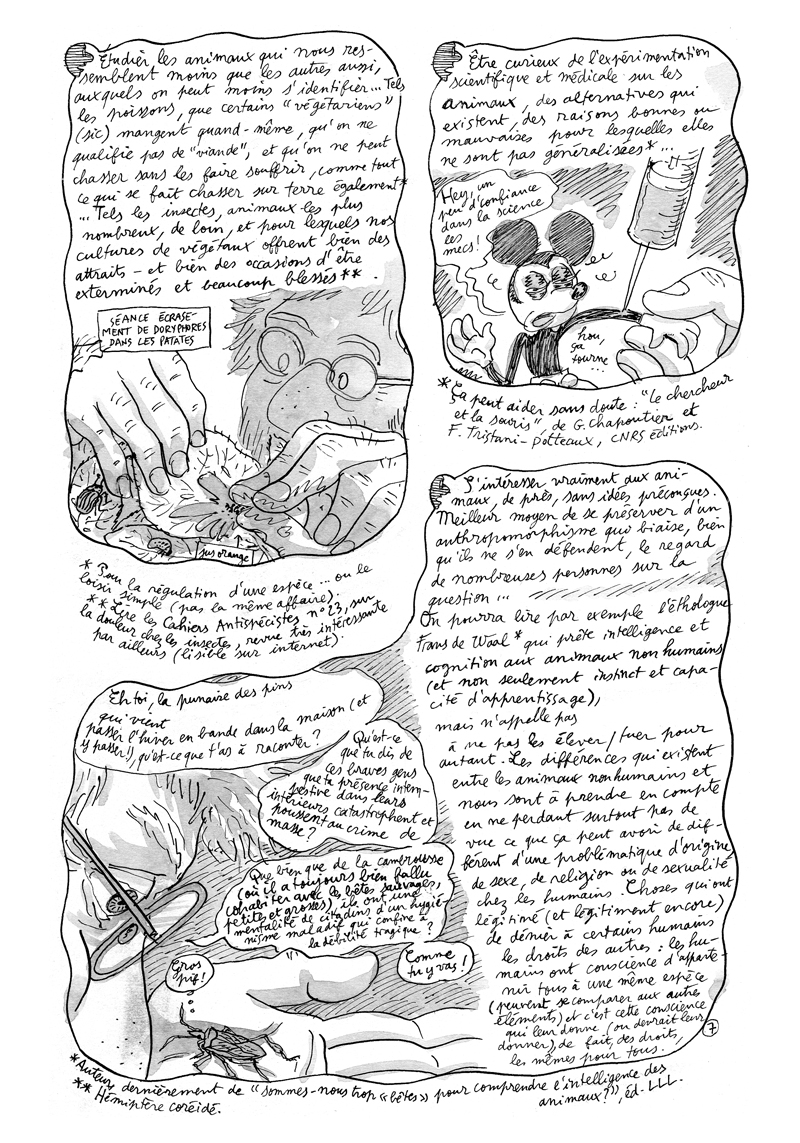 Étudier les animaux qui nous res-
semblent moins que les autres aussi,
auxquels on peut moins s'identifier... Tels
les poissons, que certains "végétariens"
(sic) mangent quand-même, qu'on ne
qualifie pas de "viande", et qu'on ne peut
chasser sans les faire souffrir, comme tout
ce qui se fait chasser sur terre également*
... Tels les insectes, animaux les plus
nombreux, de loin, et pour lesquels nos
cultures de végétaux offrent bien des
attraits - et bien des occasions d'être
exterminés et beaucoup blessés**.
SÉANCE ÉCRASE-
MENT DE DORYPHORES
DANS LES PATATES
jus orange
* Pour la régulation d'une espèce... ou le
loisir simple (pas la même affaire).
** Lire les Cahiers Antispécistes n°23, sur
la douleur chez les insectes, revue très intéressante
par ailleurs (lisible sur internet).
Être curieux de l'expérimentation
scientifique et médicale sur les
animaux, des alternatives qui
existent, des raisons bonnes ou
mauvaises pour lesquelles elles
ne sont pas généralisées*...
Hey, un
peu d'confiance
dans la science
les
mecs!
hou,
ça
tourne...
* Ça peut aider sans doute : "Le chercheur
et la souris", de G. Chapoutier et
F. Tristani-Potteaux, CNRS éditions.
S'intéresser vraiment aux ani-
maux, de près, sans idées préconçues.
Meilleur moyen de se préserver d'un
anthropomorphisme qui biaise, bien
qu'ils ne s'en défendent, le regard
de nombreuses personnes sur la
question...
On pourra lire par exemple l'éthologue
Frans de Waal* qui prête intelligence et
cognition aux animaux non humains
(et non seulement instinct et capa-
cité d'apprentissage),
mais n'appelle pas
à ne pas les élever/tuer pour
autant. Les différences qui existent
entre les animaux non humains et
nous sont à prendre en compte
en ne perdant surtout pas de
vue ce que ça peut avoir de dif-
férent d'une problématique d'origine,
de sexe, de religion ou de sexualité
chez les humains. Choses qui ont
légitimé (et légitiment encore)
de dénier à certains humains
les droits des autres : les hu-
mains ont conscience d'apparte-
nir tous à une même espèce
(peuvent se comparer aux autres
éléments) et c'est cette conscience
qui leur donne (ou devrait leur
donner), de fait, des droits,
les mêmes pour tous.
7
Eh toi, la punaise des pins
qui vient
passer l'hiver en bande dans la maison (et
y passer!), qu'est-ce que t'as à raconter?
Qu'est-ce
que tu dis de
ces braves gens
que ta présence intem-
pestive dans leurs
intérieurs catastrophent et
poussent au crime de
masse?
Que bien que de la cambrousse
(où il a toujours bien fallu
cohabiter avec les bêtes sauvages,
petites et grosses), ils ont une
mentalité de citadins d'un hygié-
nisme maladif qui confine à
la débilité tragique?
Gros
pif!
Comme
tu y vas!
*Auteur dernièrement de "sommes-nous trop «bêtes» pour comprendre l'intelligence des
animaux?", éd. LLL.
** Hémiptère coréidé.